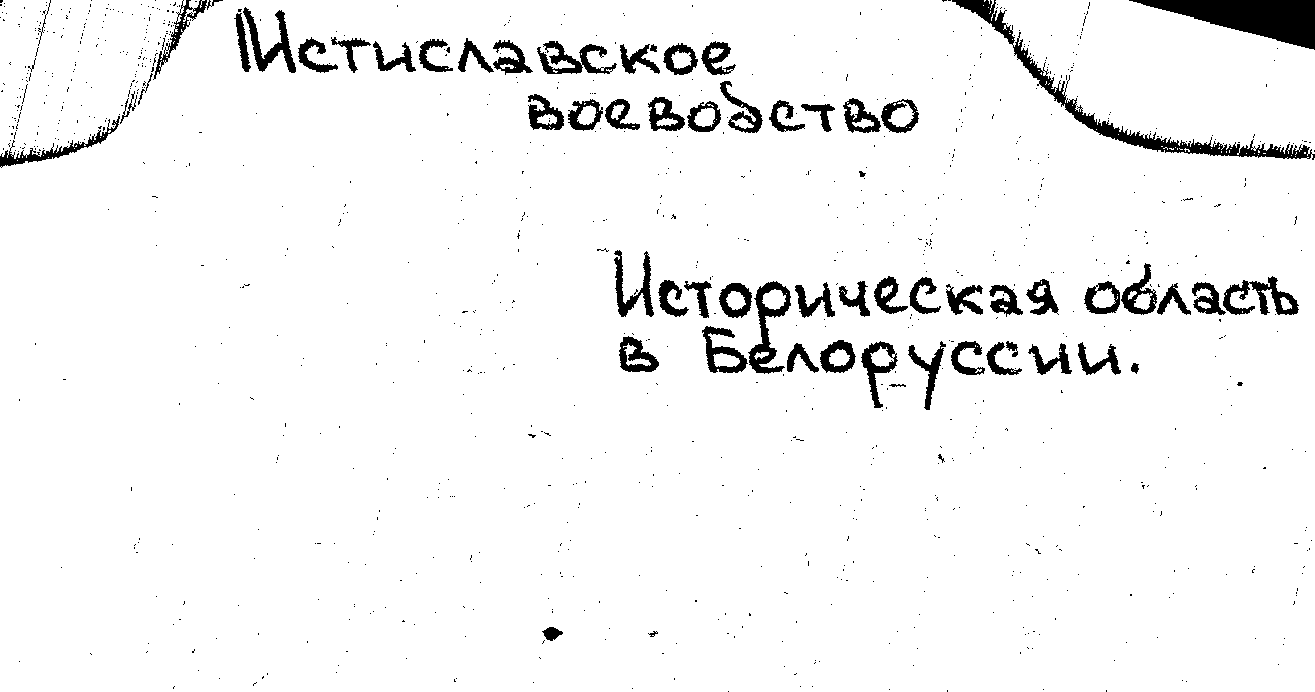 Мстиславское
воеводство
Историческая область
в Белоруссии.